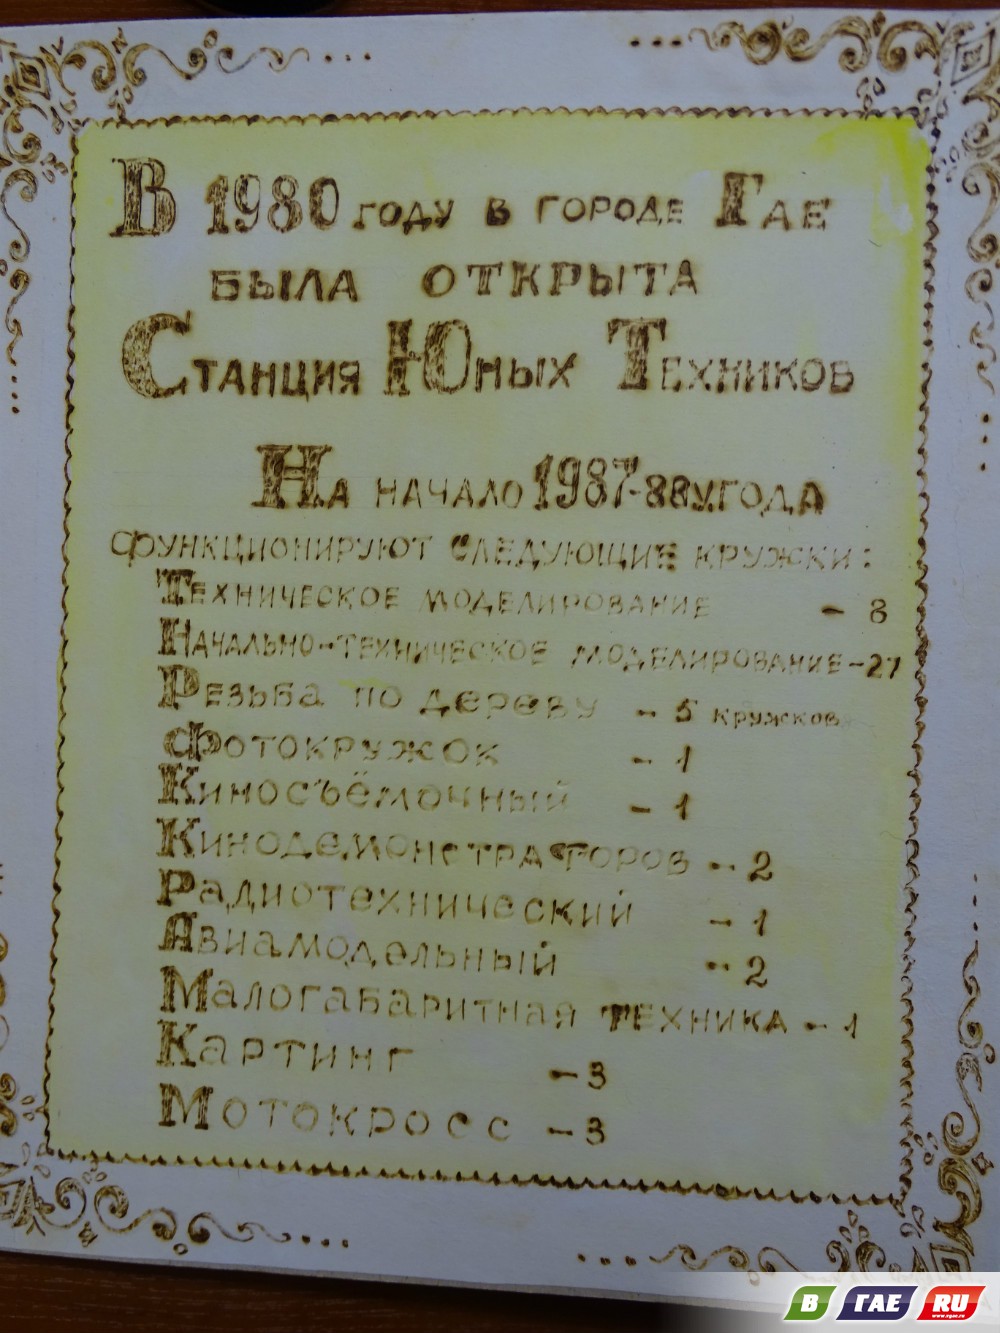 В 1980 году в городе Гае
была открыта
Станция Юных Техников
На начало 1987-88 у.года
функционируют следующие кружки:
Техническое моделирование - 8
Начально-техническое моделирование - 27
Резьба по дереву - 5 кружков
Фотокружок - 1
Киносъёмочный - 1
Кинодемонстраторов - 2
Радиотехнический - 1
Авиамодельный - 2
Малогабаритная техника - 1
Картинг - 3
Мотокросс - 3
В ГАЕ RU
www.vgae.ru